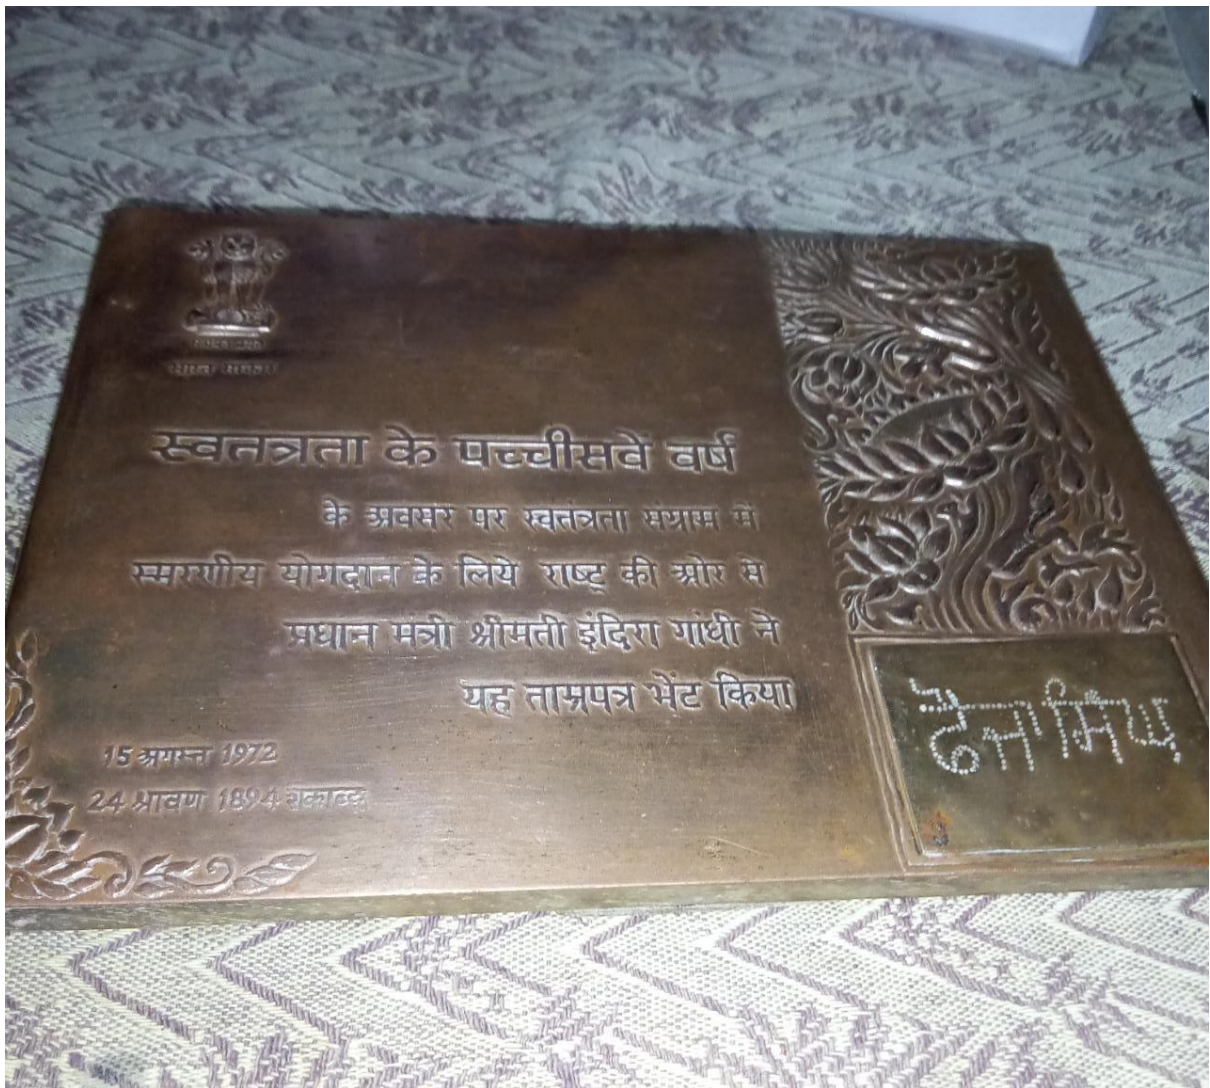 भारत सरकार
स्वतंत्रता के पच्चीसवें वर्ष
के अवसर पर स्वतंत्रता संग्राम में
स्मरणीय योगदान के लिये राष्ट्र की ओर से
प्रधान मंत्री श्रीमती इंदिरा गांधी ने
यह ताम्रपत्र भेंट किया
15 अगस्त 1972
24 श्रावण 1894 शकाब्द